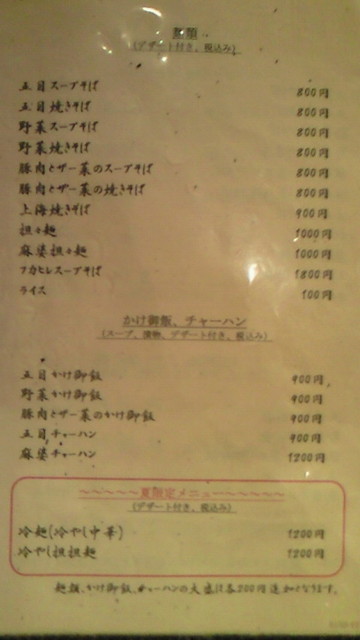 麺類
(デザート付き、税込み)
五目スープそば 800円
五目焼きそば 800円
野菜スープそば 800円
野菜焼きそば 800円
豚肉とザー菜のスープそば 800円
豚肉とザー菜の焼きそば 800円
上海焼きそば 900円
担々麺 1000円
麻婆担々麺 1000円
フカヒレスープそば 1800円
ライス 100円
かけ御飯、チャーハン
(スープ、漬物、デザート付き、税込み)
五目かけ御飯 900円
野菜かけ御飯 900円
豚肉とザー菜のかけ御飯 900円
五目チャーハン 900円
麻婆チャーハン 1200円
～～～～～夏限定メニュー～～～～～
(デザート付き、税込み)
冷麺(冷やし中華) 1200円
冷やし担担麺 1200円
麺類、かけ御飯、チャーハンの大盛は各200円追加となります。